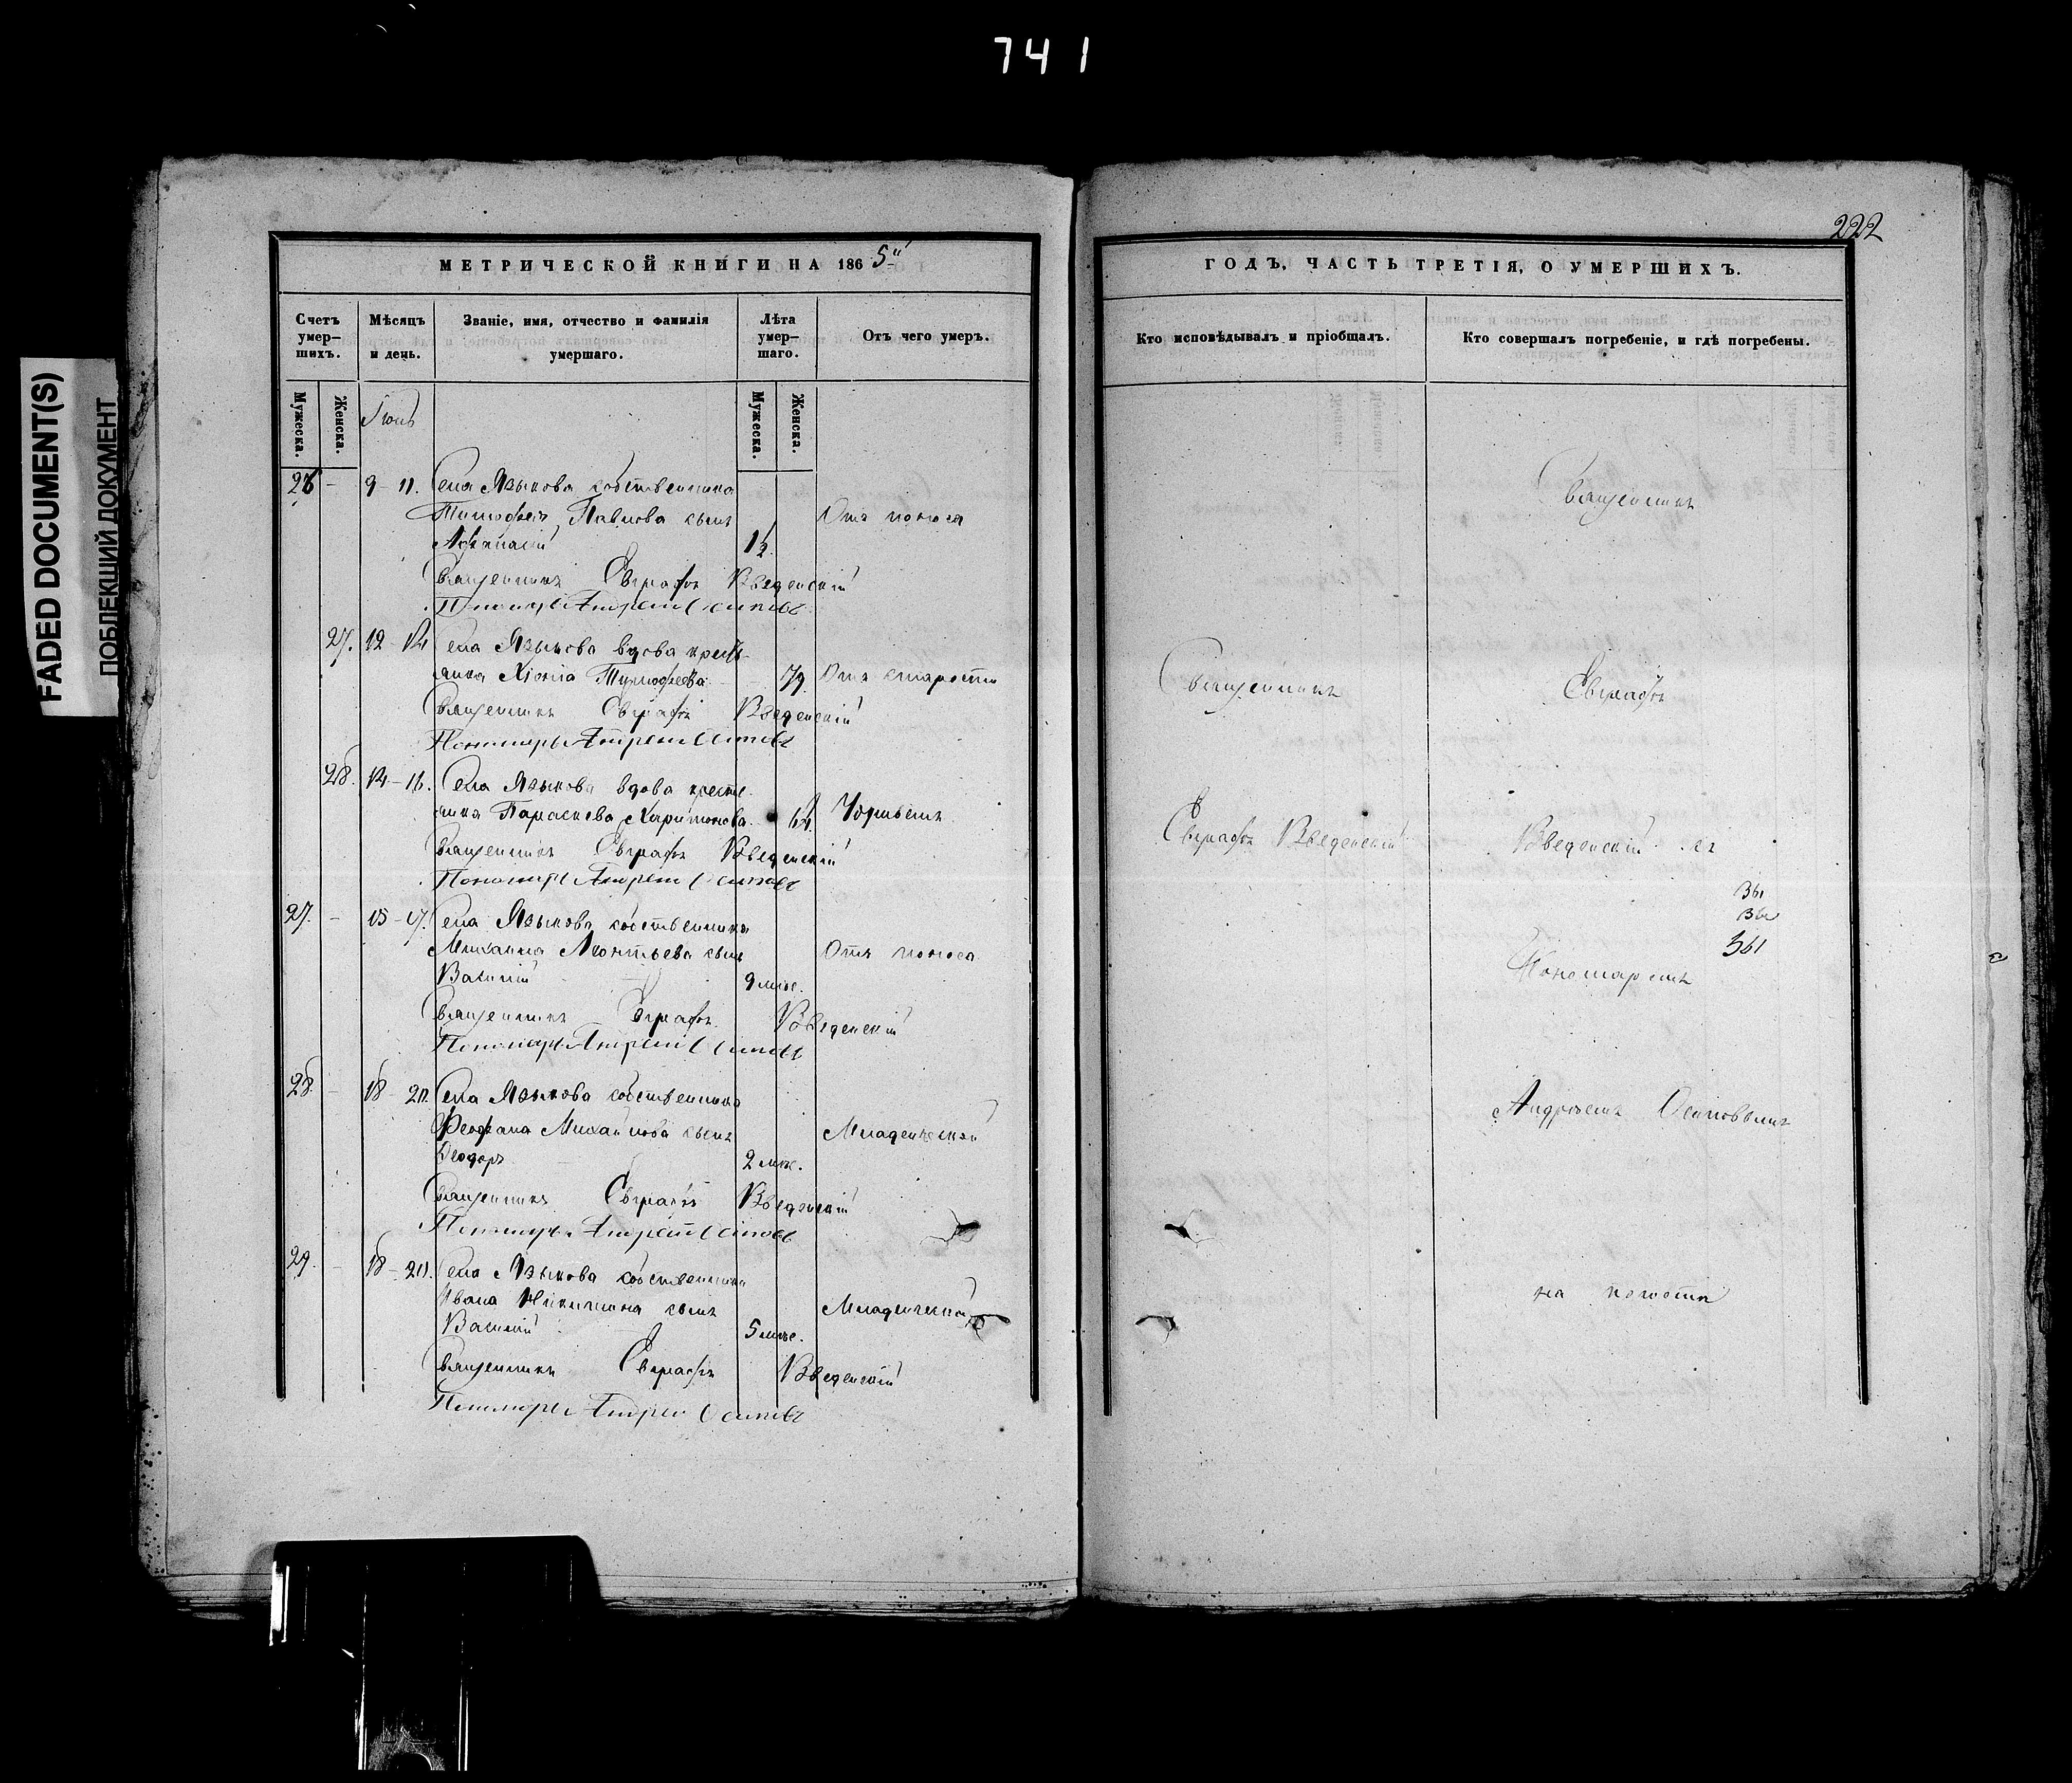 741
FADED DOCUMENT(S)
ПОБЛЕКШИЙ ДОКУМЕНТ
МЕТРИЧЕСКОЙ КНИГИ НА 1865й
Счетъ умер–шихъ.
Мѣсяцъ и день.
Званіе, имя, отчество и фамилія умершаго.
Лѣта умер–шаго.
Отъ чего умеръ.
Мужеска.
Женска.
Мужеска.
Женска.
26 – 9 – 11. Села Языкова собственника
Тимофея Павлова сынъ Отъ поноса
Афанасій
Священникъ Евграфъ Введенскій
Пономарь Андрей Осиповъ
27. 12 – 14 Села Языкова вдова кресть–
янка Хіонія Тимофеева 79 Отъ старости
Священникъ Евграфъ Введенскій
Пономарь Андрей Осиповъ
28. 14 – 16. Села Языкова вдова кресть
янка Параскева Харитонова 64.
Священникъ Евграфъ Введенскій
Пономарь Андрей Осиповъ
27. – 15 – 17. Села Языкова собственника
Михаила Леонтьева сынъ Отъ поноса
Василій 9 мѣс.
Священникъ Евграфъ Введенскій
Пономарь Андрей Осиповъ
28 – 18 20. Села Языкова собственника
Феофана Михайлова сынъ Младенческой
Феодоръ 2 мѣс.
Священникъ Евграфъ Введенскій
Пономарь Андрей Осиповъ
29. – 18 – 20. Села Языкова собственника
Ивана Никитина сынъ Младенческой
Василій 5 мѣс.
Священникъ Евграфъ Введенскій
Пономарь Андрей Осиповъ
222
ГОДЪ, ЧАСТЬ ТРЕТІЯ, О УМЕРШИХЪ.
Кто исповѣдывалъ и пріобщалъ.
Кто совершалъ погребеніе, и гдѣ погребены.
Священникъ
Священникъ Евграфъ
Евграфъ Введенскій Введенскій съ
361
361
361
Пономаремъ
Андреемъ Осиповымъ
на погостѣ